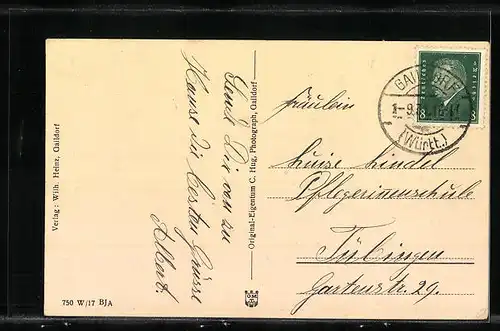 Verlag: Wilh. Heinz, Gaildorf
750 W/17 BJA
Sende Dir an zu
Hause die besten Grüsse
Albert.
Original-Eigentum C. Hug, Photograph, Gaildorf
GAILDORF
(Württ.)
8 8
Fräulein
Luise Lindel
Pflegerinnenschule
Tübingen
Gartenstr. 29.